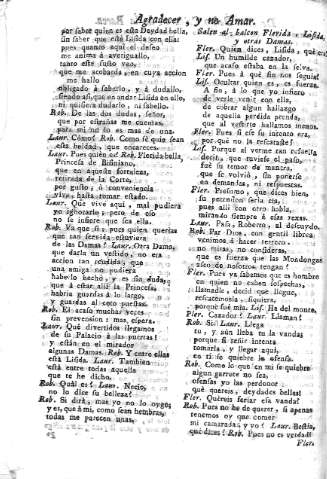 Agradecer, y no Amar.
por saber quien es esta Deydad bella,
sin saber que está Lisida con ella:
pues quando aqui el deseo
me anima à averiguallo,
tanto este susto veo,
que me acobarda, en cuya accion
me hallo
obligado à saberlo, y à dudallo,
siendo asi, que en orden Lisida en ello,
ni quisiera dudarlo, ni sabello.
Rob. De las dos dudas, señor,
que por estrañas me cuentas,
para mi no es mas de una.
Laur. Cómo? Rob. Como sé quien sea
esta beldad, que encareces.
Laur. Pues quién es? Rob. Florida bella,
Princesa de Bisiniano,
que en aquesta fortaleza,
retirada de la Corte,
por gusto, ò conveniencia
vive, hasta tomar estado.
Laur. Que vive aqui, mal pudiera
yo ignorarlo; pero de eso
no se infiere que sea
Rob. Va que si; pues quien quieras
que tan servida estuviera
de las Damas? Laur. Otra Dama,
que daria un vestido, no era
accion tan
una amiga no pudiera
haberlo hecho, y es sin duda,
que à estar alli la Princesa
habria guardas à lo largo,
y guardas al coto puestas.
Rob. El acaso muchas veces
sin prevencion
Laur. Qué divertidos llegamos
de su Palacio à las puertas!
y están en el mirador
algunas Damas. Rob. Y entre ellas
está Lisida. Laur. Tambien
está entre todas aquella
que te he dicho.
Rob. Quál es? Laur. Necio,
no lo dice su belleza?
Rob. Si dirá, mas yo no lo oygo;
y es, que à mi, como sean hembras,
todas me parecen unas.
Salen al balcon Florida, Lisida,
y otras Damas.
Flor. Quien dices, Lisida, que es?
Lis. Un humilde cazador,
que acaso estaba en la selva.
Flor. Pues à qué fin nos seguia?
Lis. Ocultar quien es, es fuerza.
A fin, à lo que yo infiero
de verle venir con ella,
de cobrar algun hallazgo
de aquella perdida prenda,
que al volverte hallamos menos.
Flor. Pues si ese su intento era,
por qué no la rescataste?
Lis. Porque al verme tan resuelta
decir, que traxese el paso,
fue su temor de manera,
que se volvió, sin ponerse
en demandas, ni respuestas.
Flor. Presumo, que dices bien,
su persona sería esta,
pues alli con otro habla,
mirando siempre à esas rexas.
Laur. Pasa, Roberto, al descuydo.
Rob. Par Dios, con gentil librea
venimos à hacer terrero:
no miras, no consideras,
que es fuerza que las Mondongas
escupan nosotros tengan?
Flor. Pues ya sabemos que es hombre
en quien no caben sospechas,
llamadle, decid que llegue,
rescatemosla siquiera,
porque fue mia. Lis. Ha del monte.
Flor. Cazador? Laur. Llaman?
Rob. Si. Laur. Llega
tu, y aun lleba tu la vandas
porque si tenir intenta
tomarla, y llegar aqui,
en ti se quiebre la ofensa.
Rob. Como lo que en mi se quiebre
algun garrote no sea,
ofensas yo las perdono:
qué quereis, deydades bellas!
Flor. Quereis feriar esa vanda?
Rob. Pues no he de querer, si apenas
tenemos oy que comer
mi camarada, y yo? Laur. Bestia,
qué dices? Rob. Pues no es verdad?
Flor.